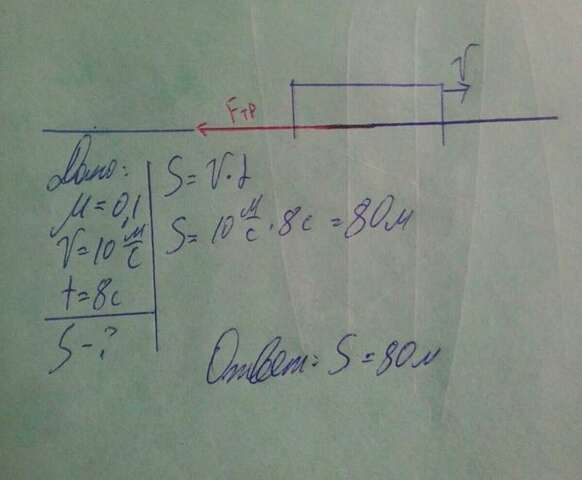 V
Fтр
Дано:
M = 0,1
V = 10 м/с
t = 8c
S - ?
S = V · t
S = 10 м/с · 8c = 80м
Ответ: S = 80м